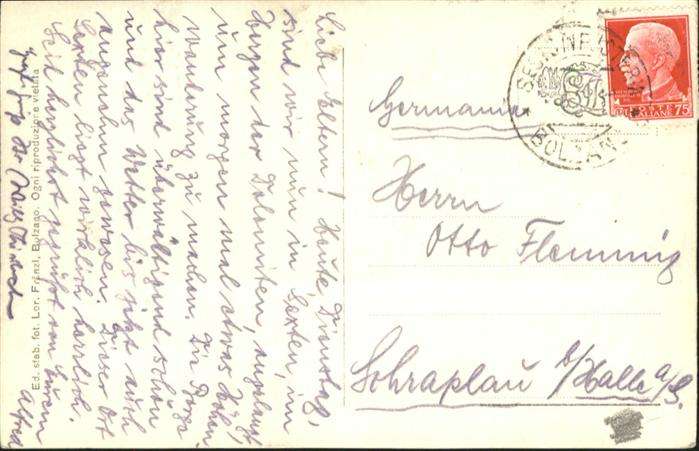 Liebe Eltern! Heute Dienstag,
sind wir nun in Sexten, im
Herzen der Dolomiten, angelangt
um morgen mal etwas Höhen-
wanderung zu machen. Die Berge
hier sind überwältigend schön
und das Wetter bis jetzt auch
angenehm gewesen. Dieser Ort
Sexten liegt wirklich herrlich.
Seid herzlichst gegrüßt von Eurem
Alfred
Ed. stab. fot. Lor. Fränzl, Bolzano. Ogni riproduzione vietata
BOLZANO
POSTE ITALIANE
75
Germania
Herrn
Otto Flemming
Schraplau
b/Halle a/S.